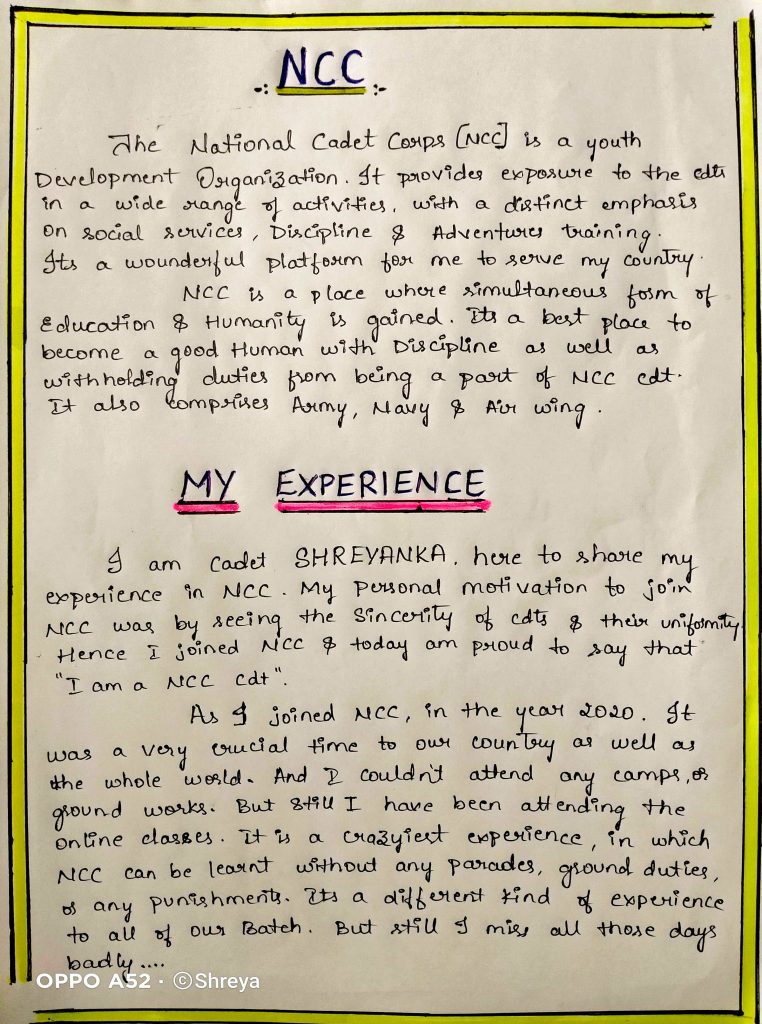 -: NCC :-
The National Cadet Corps [NCC] is a youth
Development Organization. It provides exposure to the cdts
in a wide range of activities, with a distinct emphasis
on social services, Discipline & Adventures training.
Its a wounderful platform for me to serve my country.
NCC is a place where simultaneous form of
Education & Humanity is gained. Its a best place to
become a good Human with Discipline as well as
withholding duties from being a part of NCC cdt.
It also comprises Army, Navy & Air wing.
MY EXPERIENCE
I am cadet SHREYANKA, here to share my
experience in NCC. My Personal motivation to join
NCC was by seeing the Sincerity of cdts & their uniformity.
Hence I joined NCC & today am proud to say that
"I am a NCC cdt".
As I joined NCC, in the year 2020. It
was a very crucial time to our country as well as
the whole world. And I couldn't attend any camps, or
ground works. But still I have been attending the
online classes. It is a crazyiest experience, in which
NCC can be learnt without any parades, ground duties,
or any punishments. Its a different kind of experience
to all of our Batch. But still I miss all those days
badly....
OPPO A52 · ©Shreya